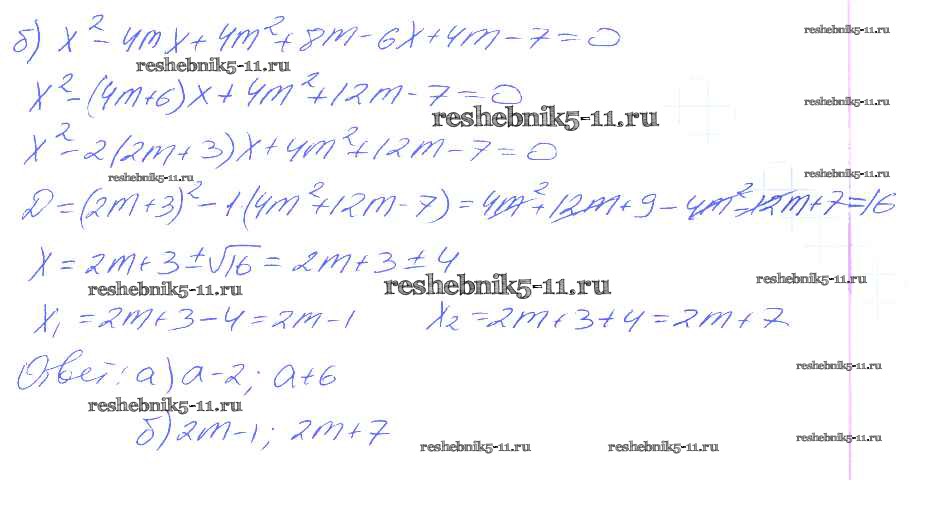 reshebnik5-11.ru
б) x² - 4mx + 4m² + 8m - 6x + 4m - 7 = 0
reshebnik5-11.ru
x² - (4m+6)x + 4m² + 12m - 7 = 0
reshebnik5-11.ru
reshebnik5-11.ru
x² - 2(2m+3)x + 4m² + 12m - 7 = 0
reshebnik5-11.ru
reshebnik5-11.ru
D = (2m+3)² - 1(4m² + 12m - 7) = 4m² + 12m + 9 - 4m² - 12m + 7 = 16
x = 2m + 3 ± √16 = 2m + 3 ± 4
reshebnik5-11.ru
reshebnik5-11.ru
reshebnik5-11.ru
x₁ = 2m + 3 - 4 = 2m - 1 x₂ = 2m + 3 + 4 = 2m + 7
reshebnik5-11.ru
Ответ: а) a - 2; a + 6
reshebnik5-11.ru
б) 2m - 1; 2m + 7
reshebnik5-11.ru
reshebnik5-11.ru
reshebnik5-11.ru